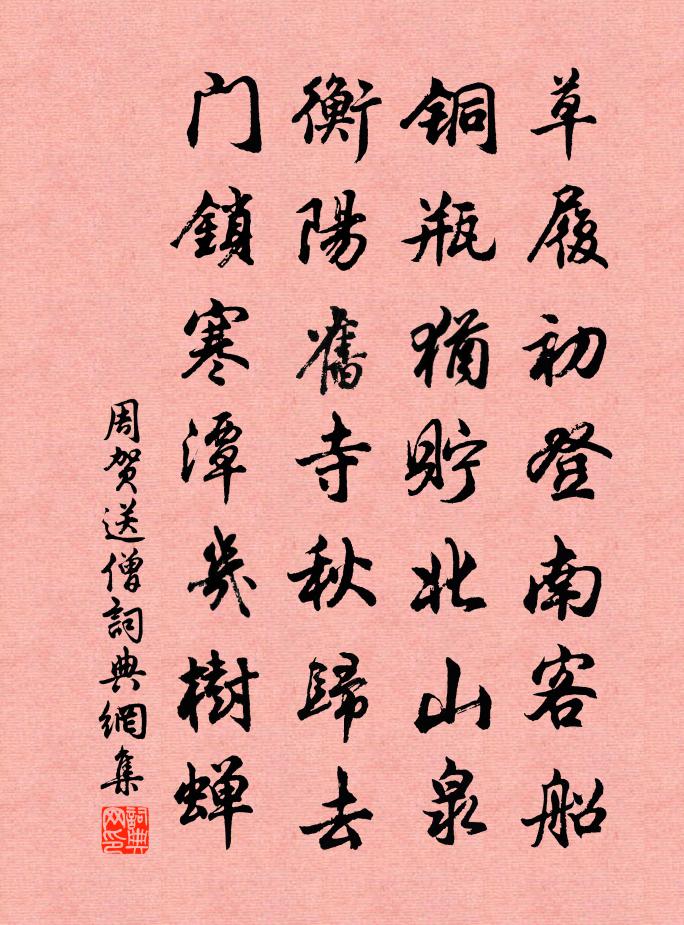 草履初登南客船
铜瓶猶貯北山泉
衡陽舊寺秋歸去
门鎖寒潭幾樹蝉
周贺送僧詞典網集
詞典网印